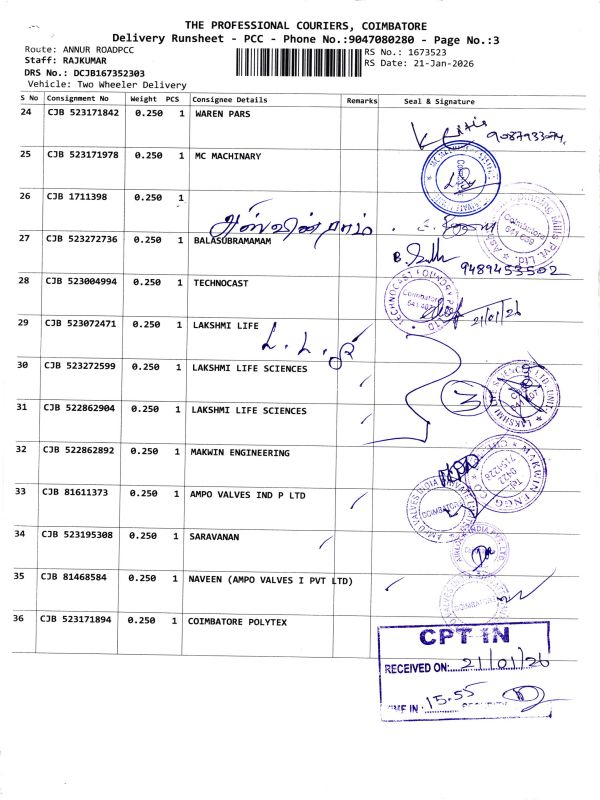 THE PROFESSIONAL COURIERS, COIMBATORE
Delivery Runsheet - PCC - Phone No.:9047080280 - Page No.:3
Route: ANNUR ROADPCC
RS No.: 1673523
Staff: RAJKUMAR
RS Date: 21-Jan-2026
DRS No.: DCJB167352303
Vehicle: Two Wheeler Delivery
S No Consignment No Weight PCS Consignee Details Remarks Seal & Signature
24 CJB 523171842 0.250 1 WAREN PARS
25 CJB 523171978 0.250 1 MC MACHINARY
26 CJB 1711398 0.250 1
27 CJB 523272736 0.250 1 BALASUBRAMAMAM
9489453502
28 CJB 523004994 0.250 1 TECHNOCAST
TECHNOCAST FOUNDRY
21/01/26
29 CJB 523072471 0.250 1 LAKSHMI LIFE
30 CJB 523272599 0.250 1 LAKSHMI LIFE SCIENCES
3
31 CJB 522862904 0.250 1 LAKSHMI LIFE SCIENCES
32 CJB 522862892 0.250 1 MAKWIN ENGINEERING
MAKWIN ENGG
33 CJB 81611373 0.250 1 AMPO VALVES IND P LTD
AMPO VALVES INDIA
COIMBATORE
34 CJB 523195308 0.250 1 SARAVANAN
35 CJB 81468584 0.250 1 NAVEEN (AMPO VALVES I PVT LTD)
36 CJB 523171894 0.250 1 COIMBATORE POLYTEX
CPT IN
RECEIVED ON: 21/01/26
15.55